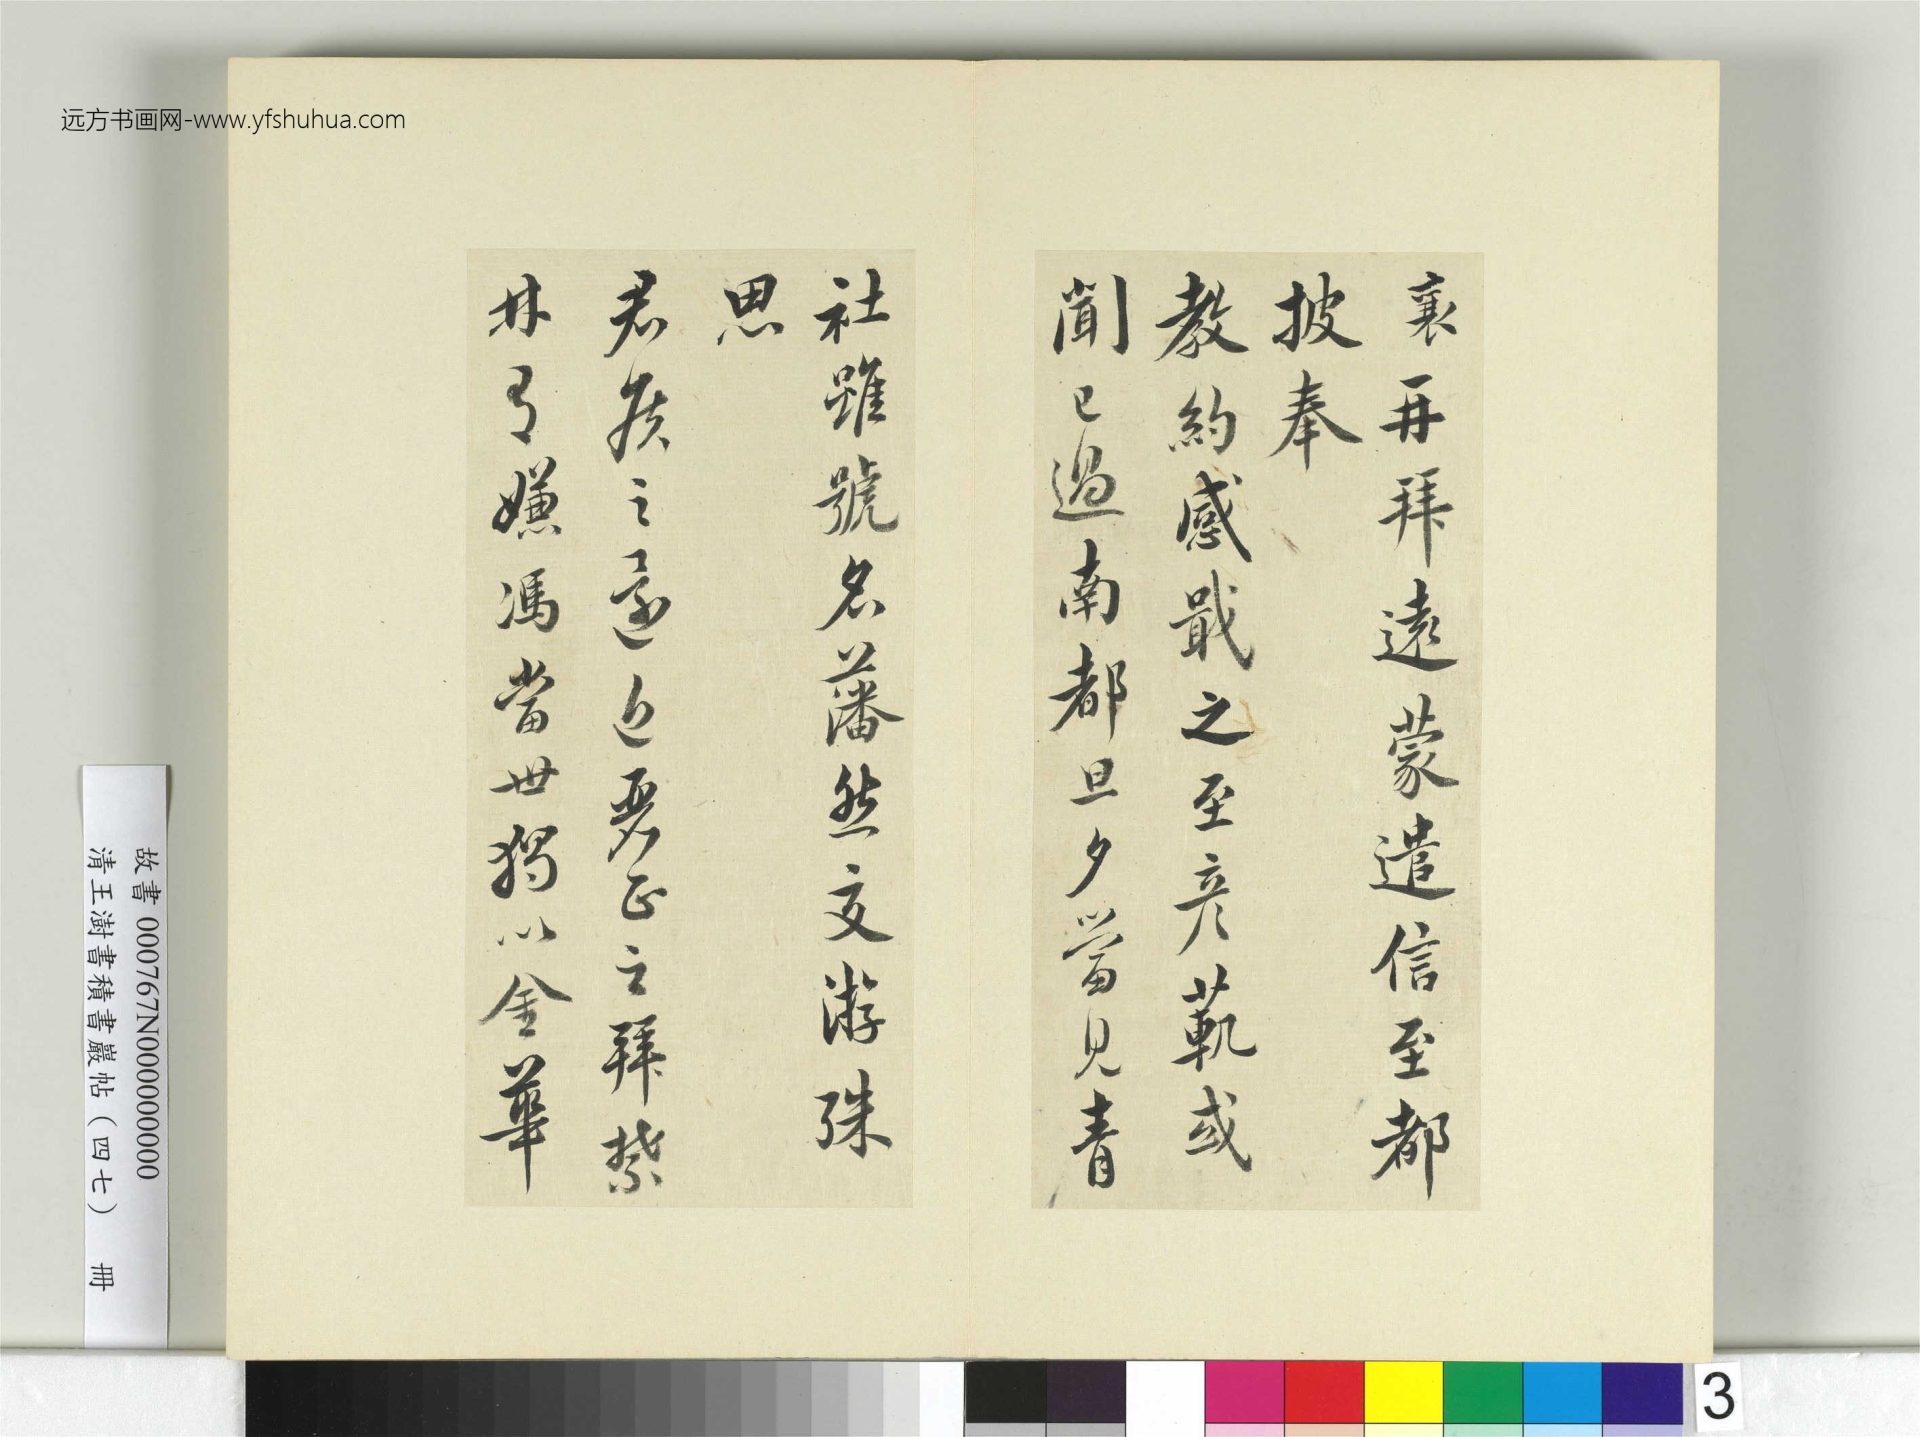 远方书画网-www.yfshuhua.com
襄再拜遠蒙遣信至都
披奉
教約感戢之至彥範或
聞已過南都旦夕當見青
社雖號名藩然交游殊
思
君侯之還近麗正之拜禁
林有嫌馮當世獨以金華
故書 000767N000000000
清王澍書積書巖帖(四七) 冊
3